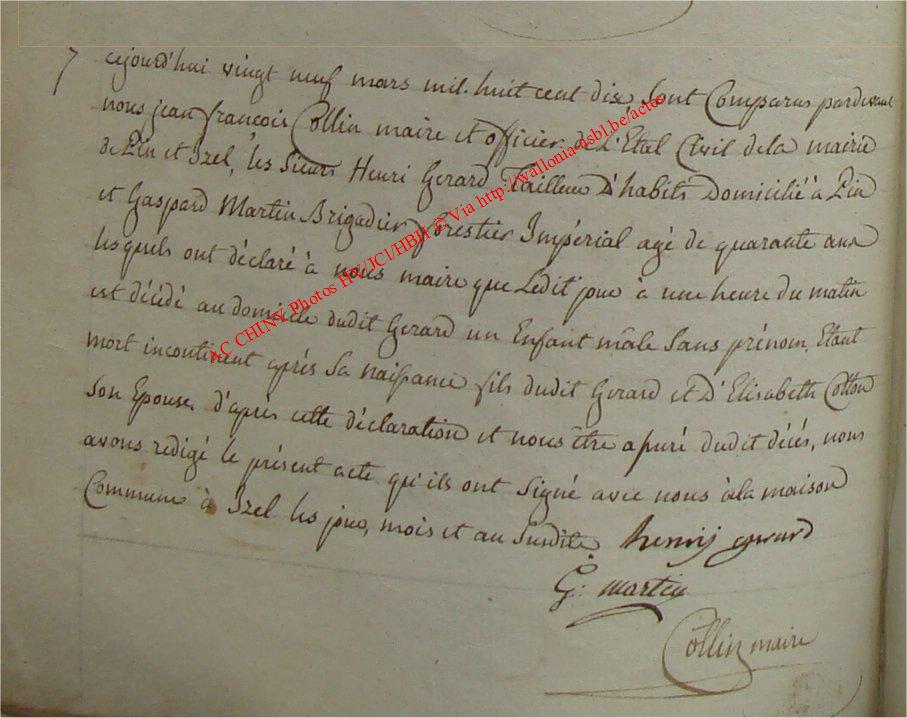 7 cejourd'hui vingt neuf mars mil huit cent dix, sont Comparus pardevant
nous jean françois Collin maire et officier de l'État Civil de la mairie
de Pin et Izel, les sieurs Henri Gerard Tailleur D'habits Domicilié à Pin
et Gaspard Martin Brigadier forestier Impérial agé de quarante ans
lesquels ont déclaré à nous maire que Ledit jour à une heure du matin
est décédé au domicile dudit Gerard un Enfant mâle sans prénom, Etant
mort incontinent après sa naissance fils dudit Gerard et D'Elisabeth Collon
son Epouse, d'après cette déclaration et nous être apuré dudit décés, nous
avons redigé le présent acte qu'ils ont signé avec nous à la maison
Commune à Izel les jour, mois et an susdits. henrij gerard
G: martin
Collin maire
AC CHINY Photos HG/JCl/HBH © Via http://wallonia-asbl.be/actes